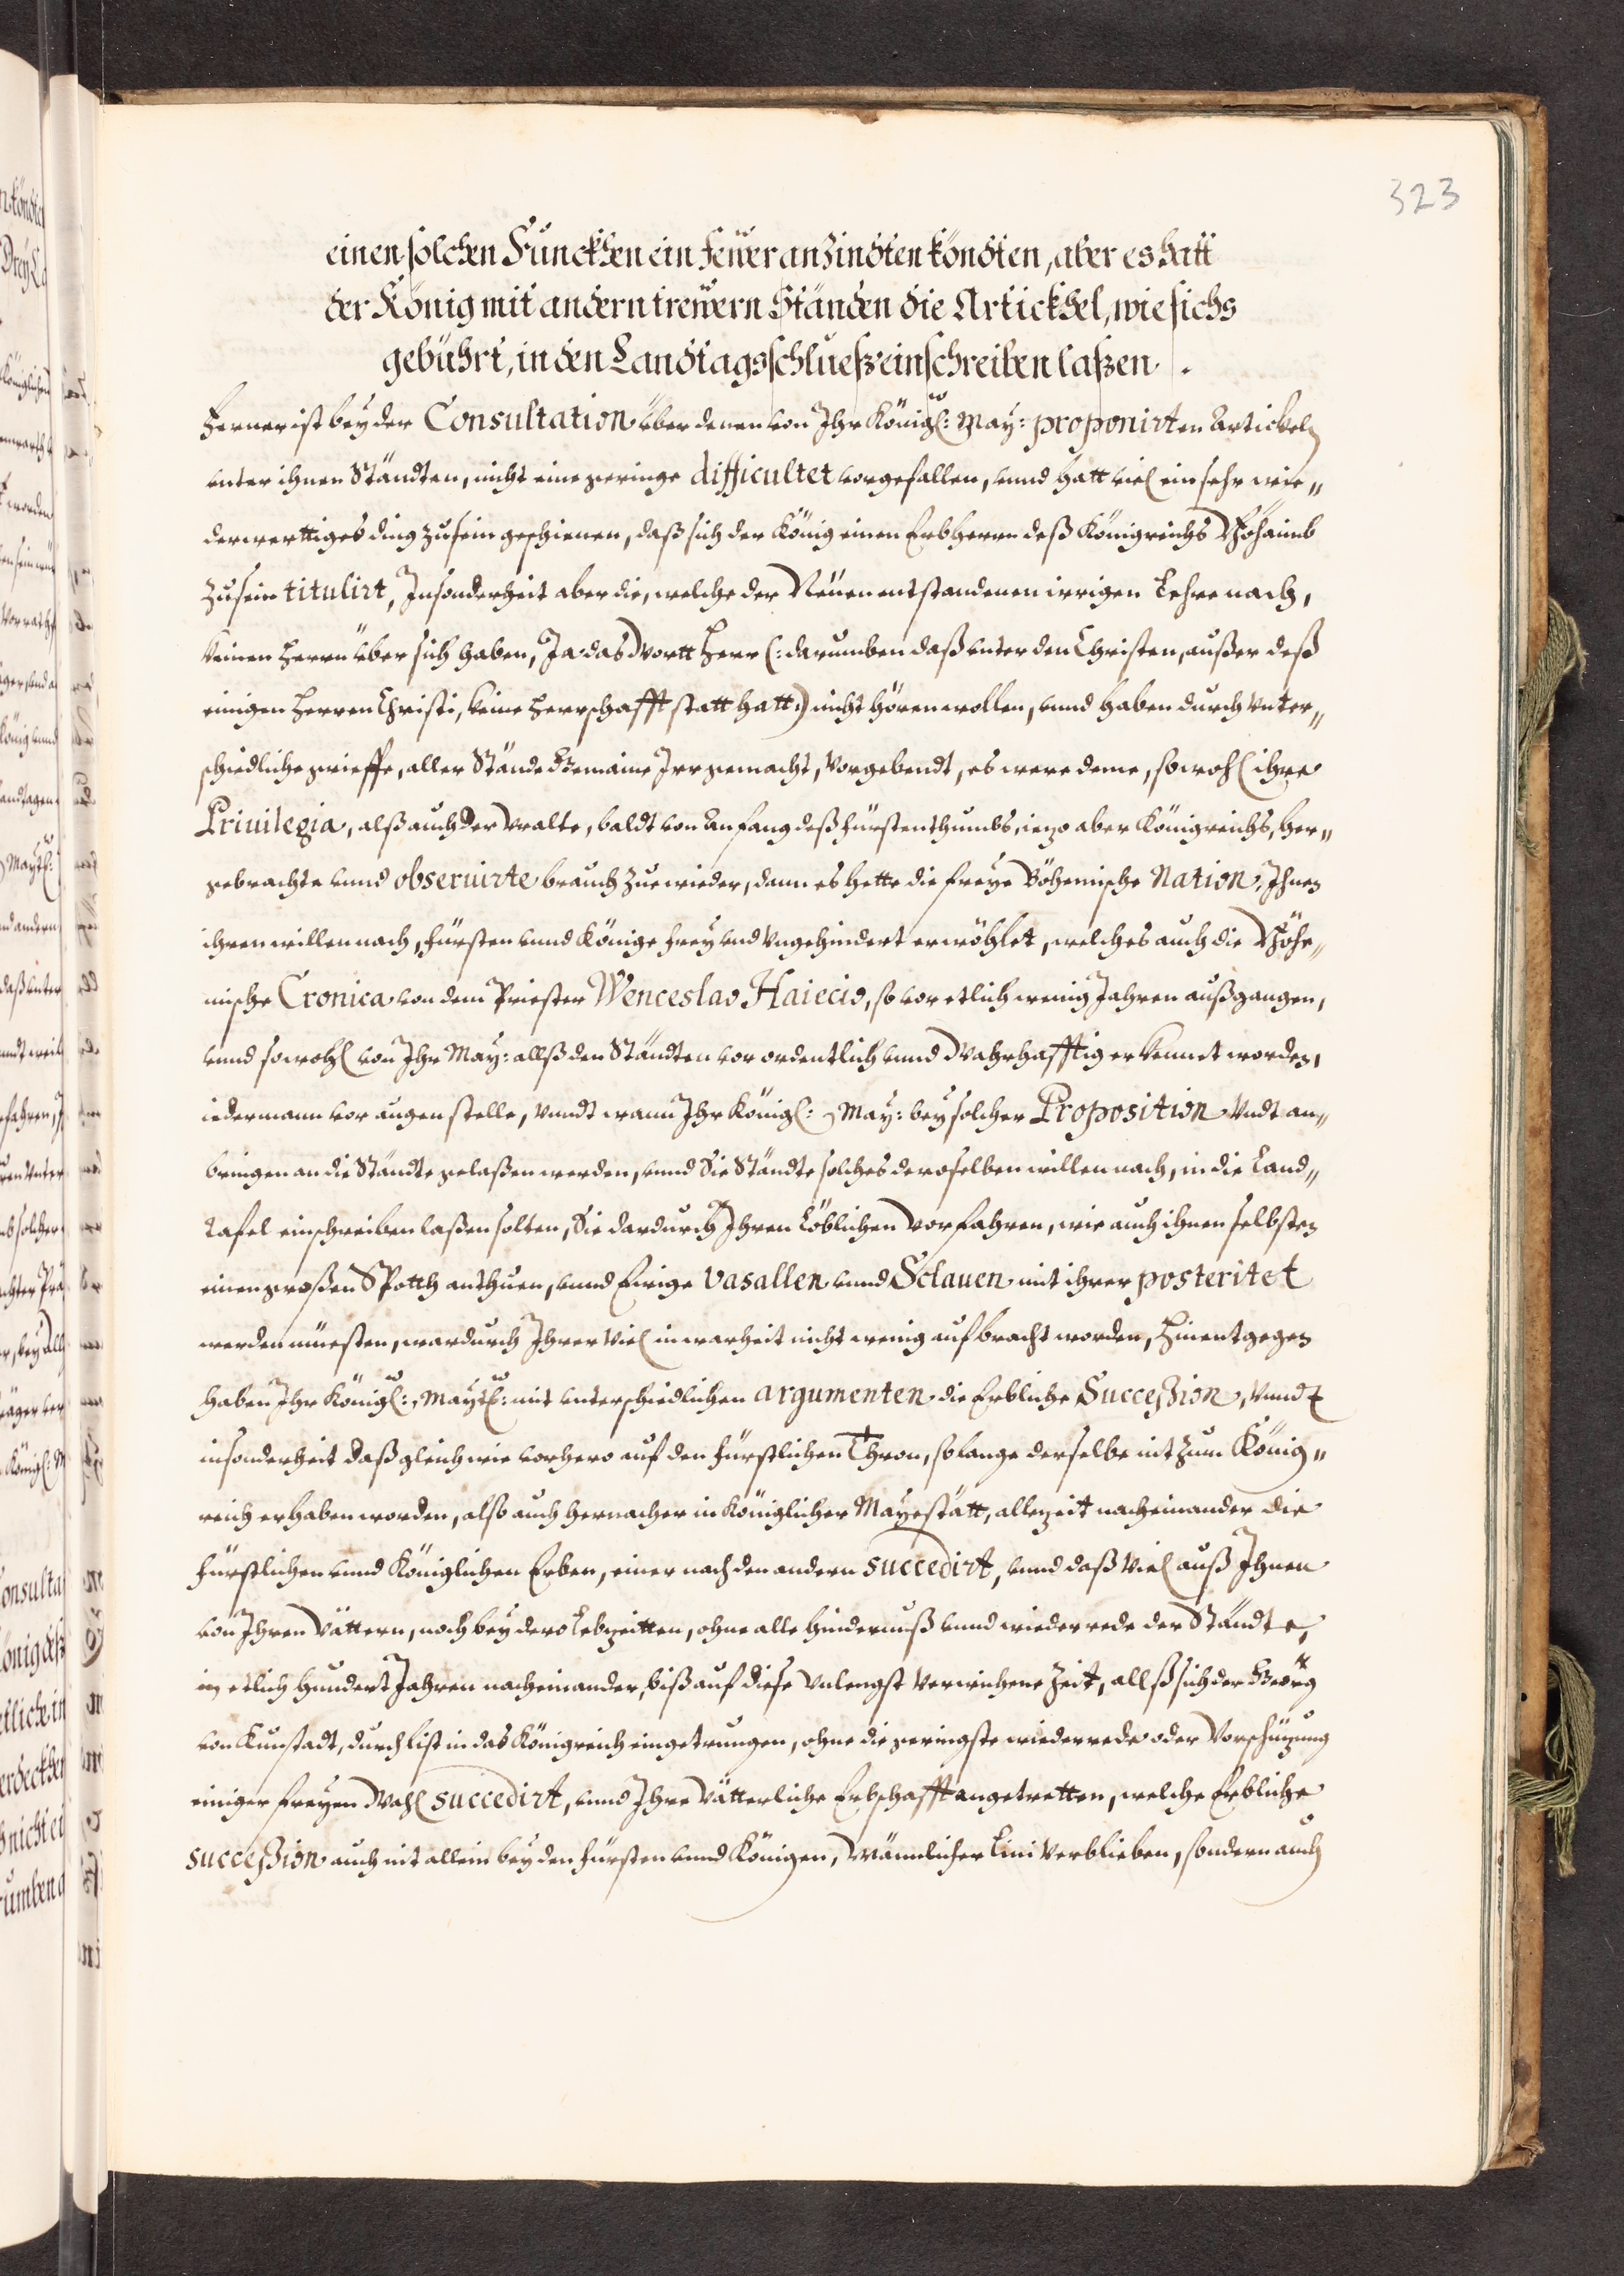 323
einen solchen Funckhen ein Feüer anzindten köndten, aber es hatt
der König mit andern treẅern Ständen die Artickhel, wie sichs
gebührt, in den Landtagsschlueß einschreiben laßen.
Ferner ist bey der Consultation über denen von Ihr Königl: May: proponirten Artickeln
unter ihnen Ständten, nicht eine geringe difficultet vorgefallen, unnd hatt viel ein sehr wie„
derwerttiges ding zu sein geschienen, daß sich der König einen Erbherrn deß Königreichs Böhaimb
zu sein titulirt, Insonderheit aber die, welche der Neüen entstandenen irrigen Lehre nach,
keinen Herrn über sich haben, Ja das Wortt Herr (: darumben daß unter den Christen, außer deß
einigen Herren Christi, keine Herrschafft statt hatt:) nicht hören wollen, unnd haben durch Unter„
schiedliche grieffe, aller Stände Gemaine Irr gemacht, Vorgebendt, es were deme, sowohl ihre
Priuilegia, alß auch der Uralte, baldt von Anfang deß fürstenthumbs, iezo aber Königreichs, her„
gebrachte unnd obseruirte brauch zue wieder, dann es hette die freye Böhemische Nation, Ihnen
ihren willen nach, fürsten unnd Könige frey und Ungehindert erwöhlet, welches auch die Böhe„
mische Cronica von dem Priester Wenceslao Haiecio, so vor etlich wenig Jahren außgangen,
unnd sowohl von Ihr May: allß den Ständten vor ordentlich unnd Wahrhafftig erkennet worden,
iedermann vor augen stelle, Unndt wann Ihr Königl: May: bey solcher Proposition Undt an„
bringen an die Ständte gelaßen werden, unnd Die Ständte solches deroselben willen nach, in die Land„
tafel einschreiben laßen solten, Sie dardurch Ihren Löblichen Vorfahren, wie auch ihnen selbsten
einen großen Spotth anthuen, unnd Ewige Vasallen unnd Sclauen mit ihrer posteritet
werden müesten, wardurch Ihrer Viel in warheit nicht wenig aufbracht worden, Hinentgegen
haben Ihr Königl: Maytl: mit unterschiedlichen argumenten die Erbliche Succeßion, Unndt
insonderheit daß gleich wie vorhero auf den fürstlichen Thron, so lange derselbe nit zum König„
reich erhaben worden, also auch hernacher in Königlicher Mayestätt, allezeit nacheinander die
fürstlichen unnd Königlichen Erben, einer nach den andern succedirt, unnd daß Viel auß Ihnen
von Ihren Vättern, noch bey dero Lebzeitten, ohne alle hindernuß unnd wiederrede der Ständte,
in etlich hundert Jahren nacheinander, biß auf diese Unlengst Verwichene Zeit, allß sich der Georg
von Kunstadt, durch list in das Königreich eingetrungen, ohne die geringste wiederrede oder Vorschüzung
einiger freyen Wahl succedirt, unnd Ihre Vätterliche Erbschafft angetretten, welche Erbliche
succeßion auch nit allein bey den fürsten unnd Königen, Männlicher Lini Verblieben, sondern auch